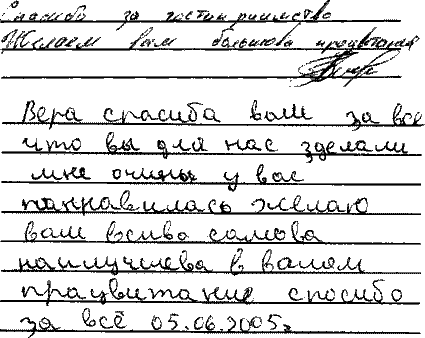 Спасибо за гостиприимство
Желаем вам большова процветания
Вера спасиба вам за все
что вы для нас зделали
мне очинь у вас
панравилась желаю
вам всиво самова
наилучшева в вашем
працвитание спосибо
за всё 05.06.2005г